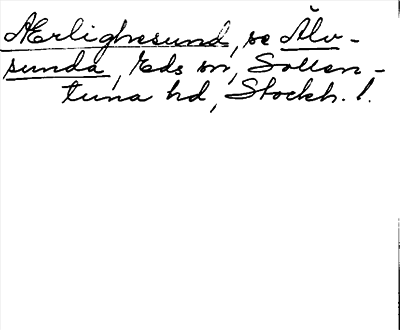 Ærlighesund, se Älv-
sunda, Eds sn, Sollen-
tuna hd, Stockh. l.